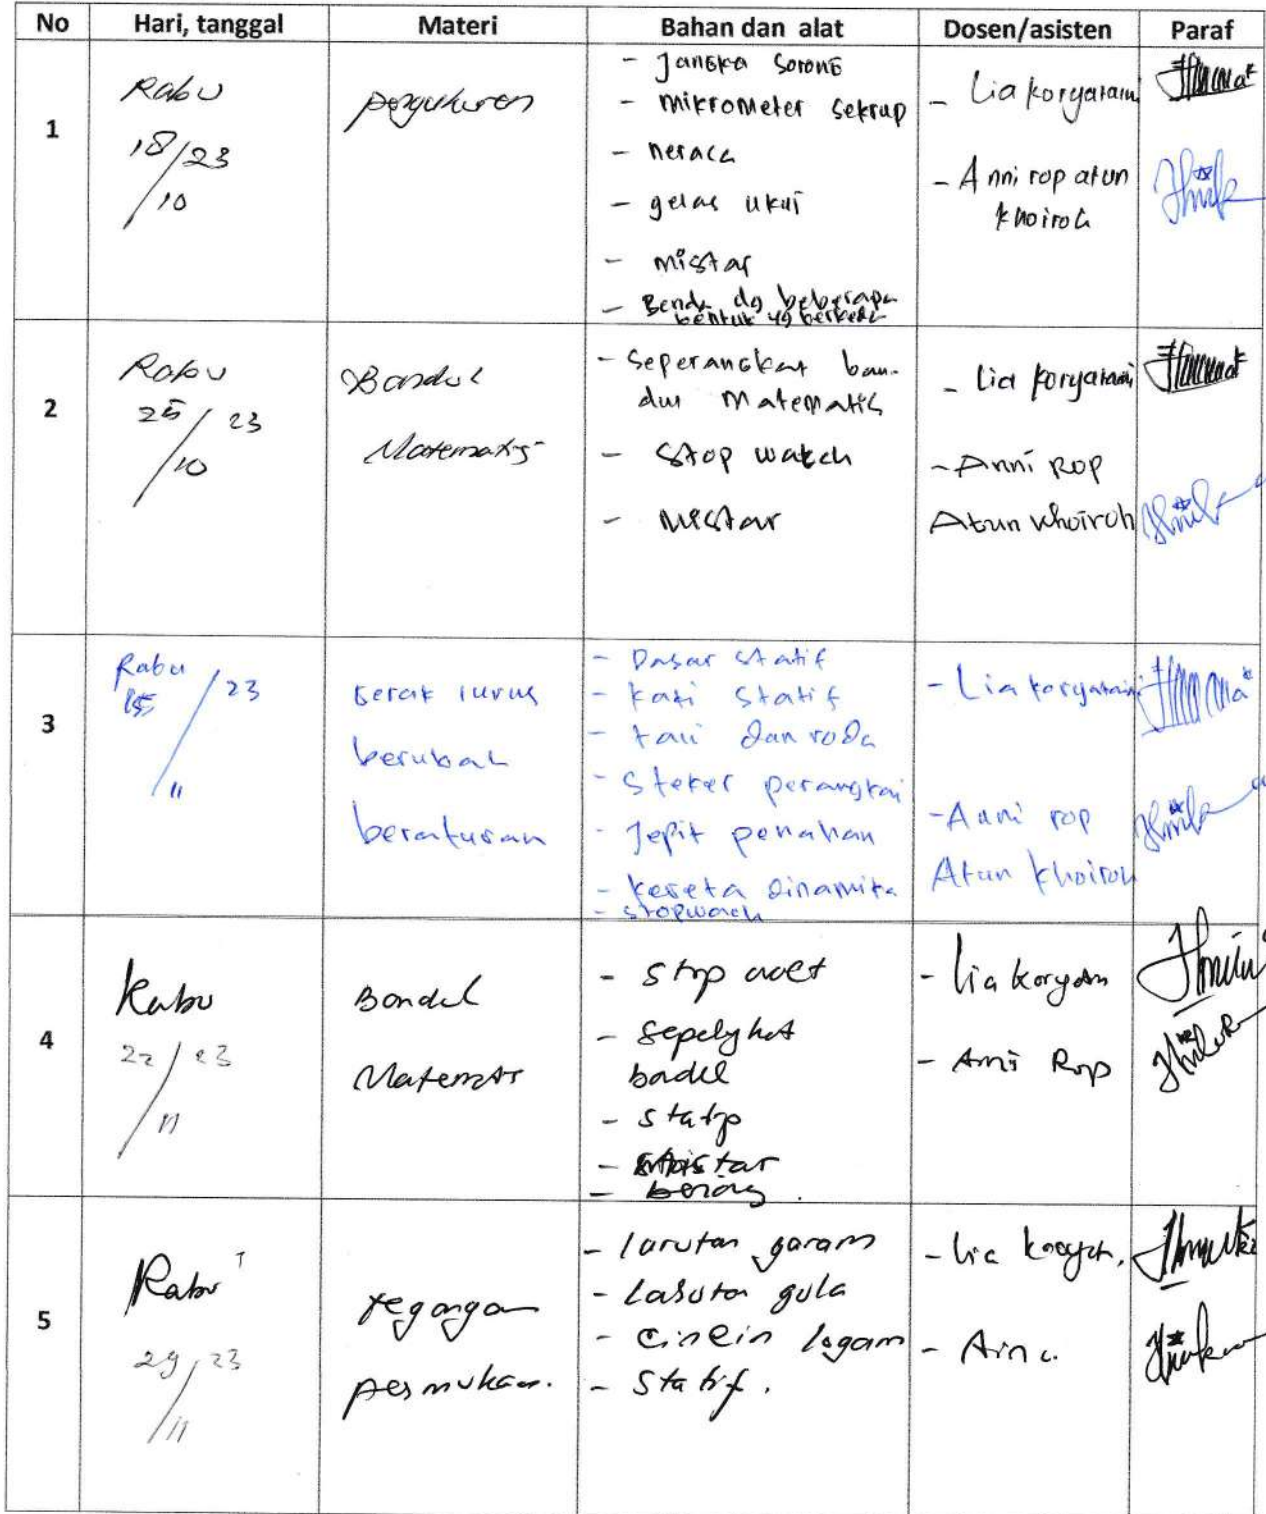 No Hari, tanggal Materi Bahan dan alat Dosen/asisten Paraf
1
Rabu
18/23
/10
pengukuran
- Jangka Sorong
- mikrometer sekrup
- neraca
- gelas ukur
- mistar
- Benda dg beberapa
bentuk yg berbeda
- Lia koryatami
- Anni rop atun
khoiroh
2
Rabu
25/23
/10
Bandul
Matematis
- Seperangkat ban-
dul matematis
- Stop watch
- Mistar
- Lia koryatami
- Anni Rop
Atun khoiroh
3
Rabu
15/23
/11
Gerak lurus
berubah
beraturan
- Dasar statif
- kaki statif
- tali dan roda
- Steker perangkai
- Jepit penahan
- kereta dinamika
- stopwach
- Lia koryatami
- Anni rop
Atun khoiroh
4
Rabu
22/23
/11
Bandul
Matematis
- Stop
-
badul
-
- mistar
-
- Lia koryam
- Anni Rop
5
Rabu
29/23
/11
tegangan
permukaan.
- larutan garam
- larutan gula
- cincin logam
- Statif.
- Lia
-